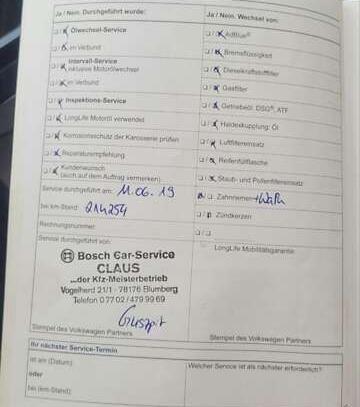 Ja / Nein. Durchgeführt wurde:
Ölwechsel-Service
im Verbund
Intervall-Service
inklusive Motorölwechsel
im Verbund
Inspektions-Service
LongLife Motoröl verwendet
Korrosionsschutz der Karosserie prüfen
Reparaturempfehlung
Kundenwunsch
(auch auf dem Auftrag vermerken)
Service durchgeführt am: 11.06.19
bei km-Stand: 214254
Rechnungsnummer:
Service durchgeführt von:
Bosch Car-Service
CLAUS
...der Kfz-Meisterbetrieb
Vogelherd 21/1 - 78176 Blumberg
Telefon 0 77 02 / 479 99 69
Stempel des Volkswagen Partners
Ihr nächster Service-Termin
ist am (Datum):
oder
bei (km-Stand):
Ja / Nein. Wechsel von:
AdBlue®
Bremsflüssigkeit
Dieselkraftstofffilter
Gasfilter
Getriebeöl: DSG®, ATF
Haldexkupplung: Öl
Luftfiltereinsatz
Reifenfüllflasche
Staub- und Pollenfiltereinsatz
Zahnriemen + WaPu
Zündkerzen
LongLife Mobilitätsgarantie
Stempel des Volkswagen Partners
Welcher Service ist als nächster erforderlich?